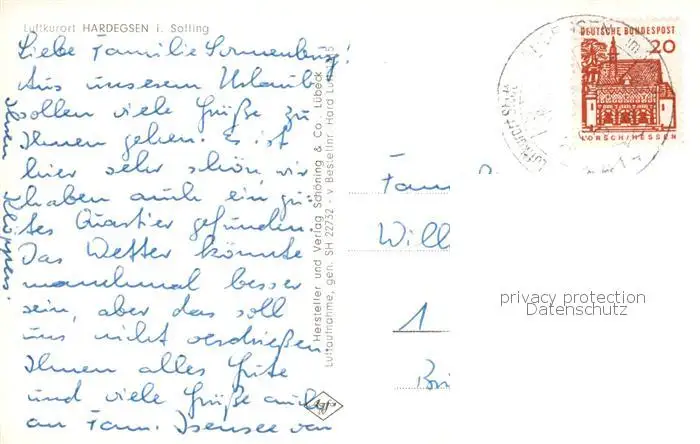 Luftkurort HARDEGSEN i. Solling
Liebe Familie Sonnenburg!
Aus unserem Urlaub
sollen viele Grüße zu
Ihnen gehen. Es ist
hier sehr schön, wir
haben auch ein gu-
tes Quartier gefunden.
Das Wetter könnte
manchmal besser
sein, aber das soll
uns nicht verdrießen.
Ihnen alles Gute
und viele Grüße auch
an Fam. Isensee von
Ihren Klöppers.
Hersteller und Verlag Schöning & Co., Lübeck
Luftaufnahme, gen. SH 22732 - v Bestellnr. Hard Lu
DEUTSCHE BUNDESPOST
20
LORSCH/HESSEN
Fam
Will
1
privacy protection
Datenschutz